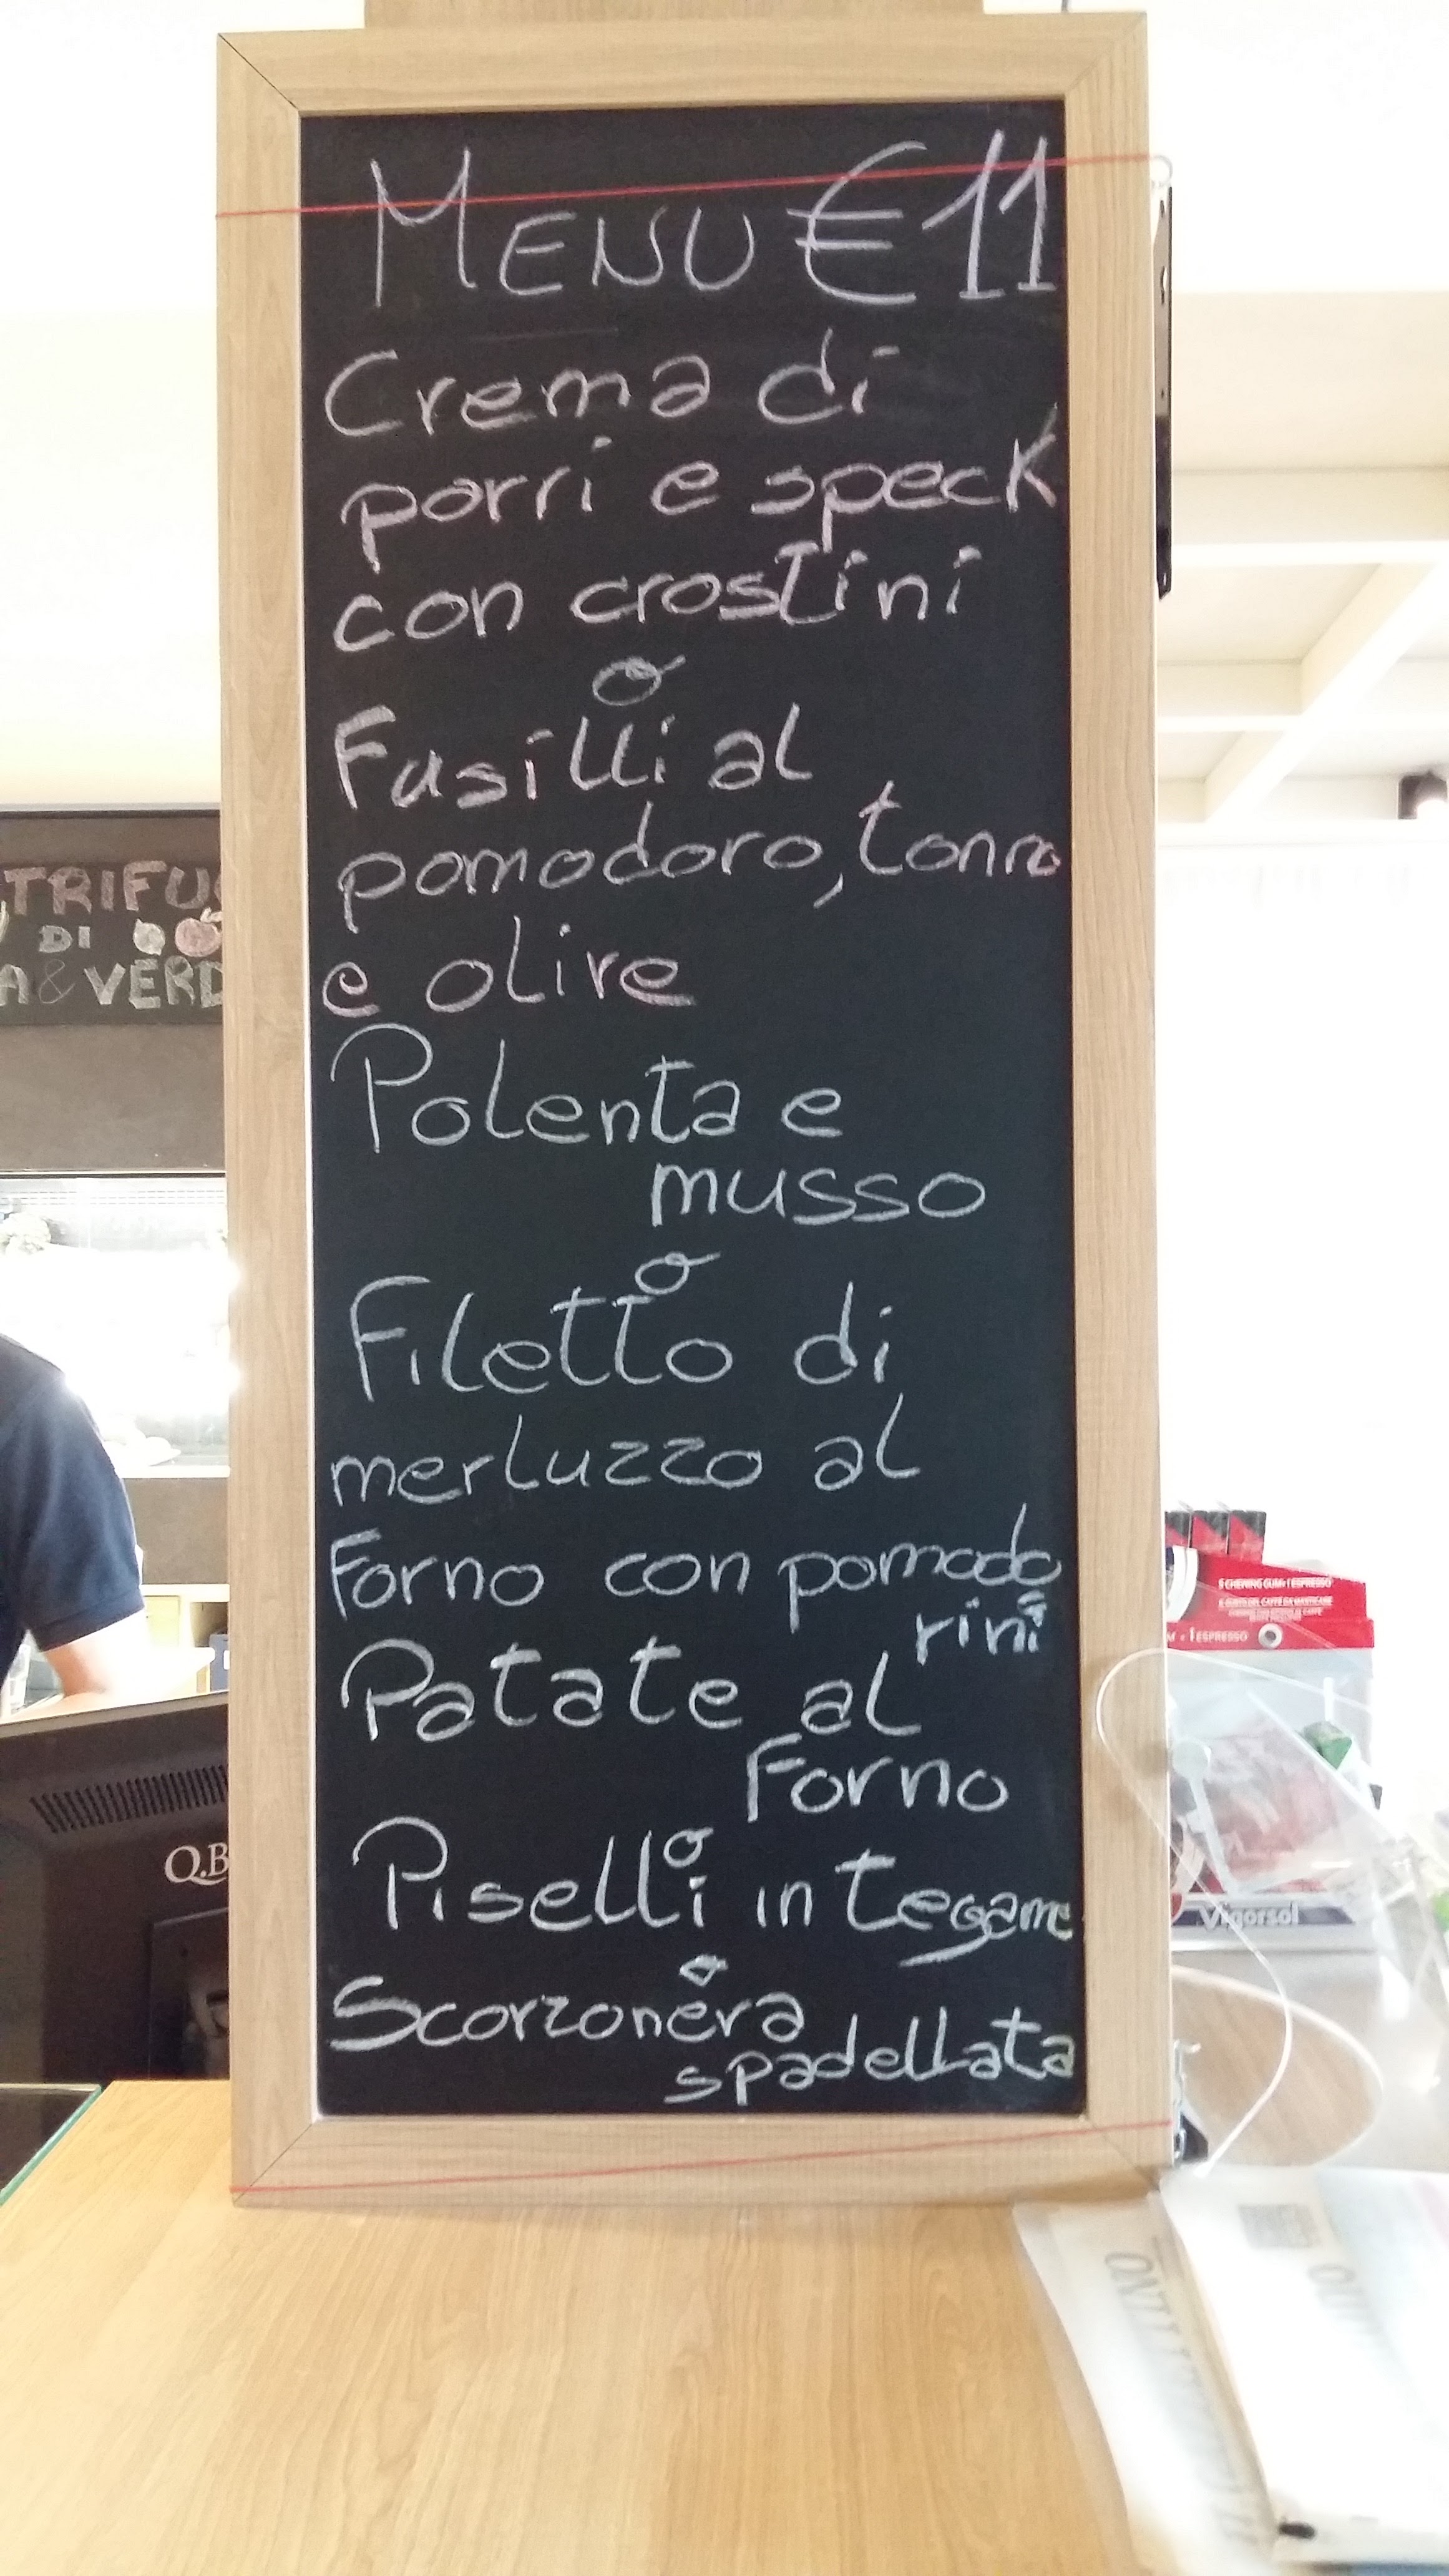 MENU €11
Crema di
porri e speck
con crostini
o
Fusilli al
pomodoro, tonno
e olive
Polenta e
musso
o
Filetto di
merluzzo al
Forno con pomodo
rini
Patate al
Forno
o
Piselli in tegame
o
Scorzonera
spadellata
TRIFU
DI
A & VERD
Q.B
5 CHEWING GUM = 1 ESPRESSO
M = 1 ESPRESSO
Vigorsol